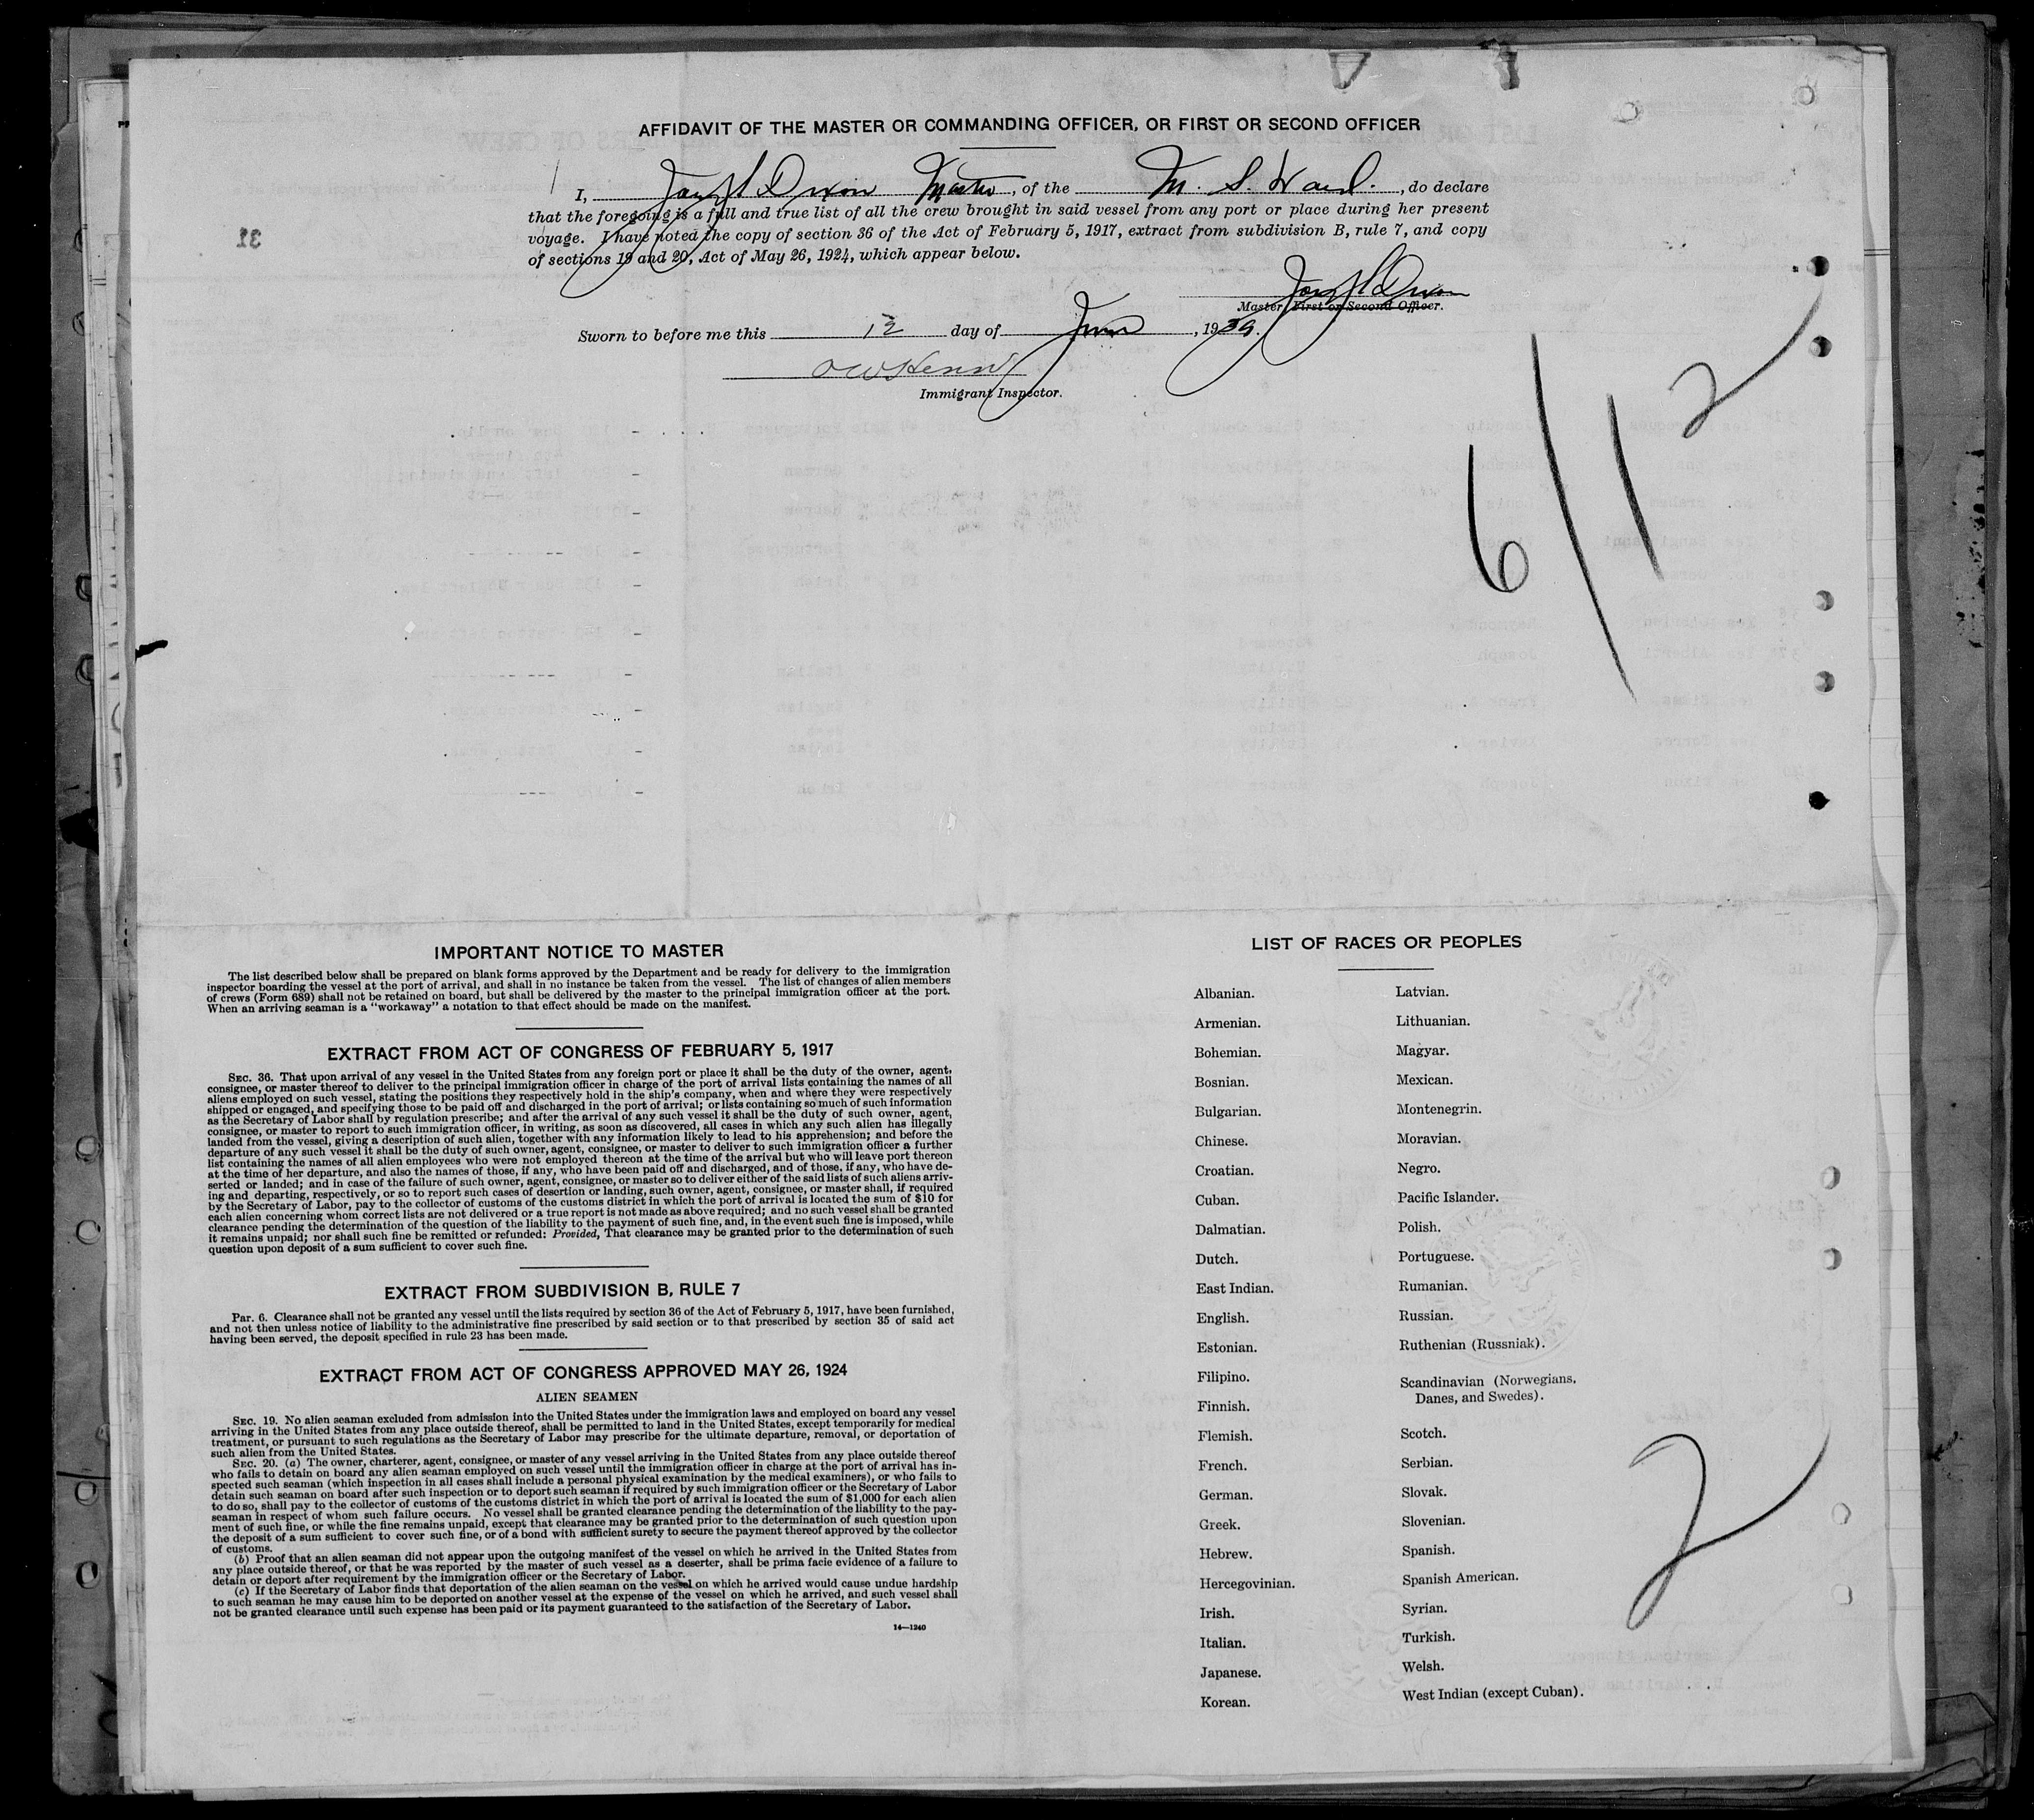 AFFIDAVIT OF THE MASTER OR COMMANDING OFFICER, OR FIRST OR SECOND OFFICER
I, Joseph Dixon Master, of the M. S. Ward., do declare
that the foregoing is a full and true list of all the crew brought in said vessel from any port or place during her present
voyage. I have noted the copy of section 36 of the Act of February 5, 1917, extract from subdivision B, rule 7, and copy
of sections 19 and 20, Act of May 26, 1924, which appear below.
Joseph Dixon
Master, First or Second Officer.
Sworn to before me this 12 day of June, 1939.
Immigrant Inspector.
6/12
IMPORTANT NOTICE TO MASTER
The list described below shall be prepared on blank forms approved by the Department and be ready for delivery to the immigration
inspector boarding the vessel at the port of arrival, and shall in no instance be taken from the vessel. The list of changes of alien members
of crews (Form 689) shall not be retained on board, but shall be delivered by the master to the principal immigration officer at the port.
When an arriving seaman is a "workaway" a notation to that effect should be made on the manifest.
EXTRACT FROM ACT OF CONGRESS OF FEBRUARY 5, 1917
SEC. 36. That upon arrival of any vessel in the United States from any foreign port or place it shall be the duty of the owner, agent,
consignee, or master thereof to deliver to the principal immigration officer in charge of the port of arrival lists containing the names of all
aliens employed on such vessel, stating the positions they respectively hold in the ship's company, when and where they were respectively
shipped or engaged, and specifying those to be paid off and discharged in the port of arrival; or lists containing so much of such information
as the Secretary of Labor shall by regulation prescribe; and after the arrival of any such vessel it shall be the duty of such owner, agent,
consignee, or master to report to such immigration officer, in writing, as soon as discovered, all cases in which any such alien has illegally
landed from the vessel, giving a description of such alien, together with any information likely to lead to his apprehension; and before the
departure of any such vessel it shall be the duty of such owner, agent, consignee, or master to deliver to such immigration officer a further
list containing the names of all alien employees who were not employed thereon at the time of the arrival but who will leave port thereon
at the time of her departure, and also the names of those, if any, who have been paid off and discharged, and of those, if any, who have de-
serted or landed; and in case of the failure of such owner, agent, consignee, or master so to deliver either of the said lists of such aliens arriv-
ing and departing, respectively, or so to report such cases of desertion or landing, such owner, agent, consignee, or master shall, if required
by the Secretary of Labor, pay to the collector of customs of the customs district in which the port of arrival is located the sum of $10 for
each alien concerning whom correct lists are not delivered or a true report is not made as above required; and no such vessel shall be granted
clearance pending the determination of the question of the liability to the payment of such fine, and, in the event such fine is imposed, while
it remains unpaid; nor shall such fine be remitted or refunded: Provided, That clearance may be granted prior to the determination of such
question upon deposit of a sum sufficient to cover such fine.
EXTRACT FROM SUBDIVISION B, RULE 7
Par. 6. Clearance shall not be granted any vessel until the lists required by section 36 of the Act of February 5, 1917, have been furnished,
and not then unless notice of liability to the administrative fine prescribed by said section or to that prescribed by section 35 of said act
having been served, the deposit specified in rule 23 has been made.
EXTRACT FROM ACT OF CONGRESS APPROVED MAY 26, 1924
ALIEN SEAMEN
SEC. 19. No alien seaman excluded from admission into the United States under the immigration laws and employed on board any vessel
arriving in the United States from any place outside thereof, shall be permitted to land in the United States, except temporarily for medical
treatment, or pursuant to such regulations as the Secretary of Labor may prescribe for the ultimate departure, removal, or deportation of
such alien from the United States.
SEC. 20. (a) The owner, charterer, agent, consignee, or master of any vessel arriving in the United States from any place outside thereof
who fails to detain on board any alien seaman employed on such vessel until the immigration officer in charge at the port of arrival has in-
spected such seaman (which inspection in all cases shall include a personal physical examination by the medical examiners), or who fails to
detain such seaman on board after such inspection or to deport such seaman if required by such immigration officer or the Secretary of Labor
to do so, shall pay to the collector of customs of the customs district in which the port of arrival is located the sum of $1,000 for each alien
seaman in respect of whom such failure occurs. No vessel shall be granted clearance pending the determination of the liability to the pay-
ment of such fine, or while the fine remains unpaid, except that clearance may be granted prior to the determination of such question upon
the deposit of a sum sufficient to cover such fine, or of a bond with sufficient surety to secure the payment thereof approved by the collector
of customs.
(b) Proof that an alien seaman did not appear upon the outgoing manifest of the vessel on which he arrived in the United States from
any place outside thereof, or that he was reported by the master of such vessel as a deserter, shall be prima facie evidence of a failure to
detain or deport after requirement by the immigration officer or the Secretary of Labor.
(c) If the Secretary of Labor finds that deportation of the alien seaman on the vessel on which he arrived would cause undue hardship
to such seaman he may cause him to be deported on another vessel at the expense of the vessel on which he arrived, and such vessel shall
not be granted clearance until such expense has been paid or its payment guaranteed to the satisfaction of the Secretary of Labor.
14—1240
LIST OF RACES OR PEOPLES
Albanian.
Armenian.
Bohemian.
Bosnian.
Bulgarian.
Chinese.
Croatian.
Cuban.
Dalmatian.
Dutch.
East Indian.
English.
Estonian.
Filipino.
Finnish.
Flemish.
French.
German.
Greek.
Hebrew.
Hercegovinian.
Irish.
Italian.
Japanese.
Korean.
Latvian.
Lithuanian.
Magyar.
Mexican.
Montenegrin.
Moravian.
Negro.
Pacific Islander.
Polish.
Portuguese.
Rumanian.
Russian.
Ruthenian (Russniak).
Scandinavian (Norwegians,
Danes, and Swedes).
Scotch.
Serbian.
Slovak.
Slovenian.
Spanish.
Spanish American.
Syrian.
Turkish.
Welsh.
West Indian (except Cuban).
2